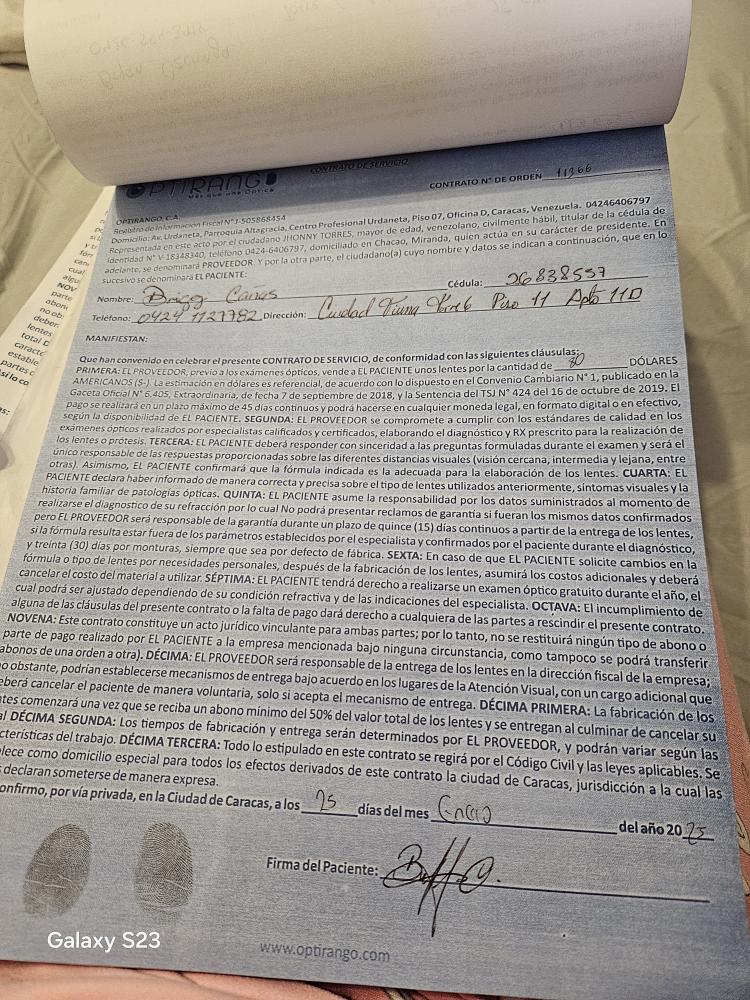 CONTRATO DE SERVICIO
OPTIRANGO
CONTRATO N° DE ORDEN 11366
OPTIRANGO, C.A.
Registro de Información Fiscal N° J-505868454
Domicilio: Av. Urdaneta, Parroquia Altagracia, Centro Profesional Urdaneta, Piso 07, Oficina D, Caracas, Venezuela. 04246406797
Representada en este acto por el ciudadano JHONNY TORRES, mayor de edad, venezolano, civilmente hábil, titular de la cédula de
identidad N° V-18348340, teléfono 0424-6406797, domiciliado en Chacao, Miranda, quien actúa en su carácter de presidente. En
adelante, se denominará PROVEEDOR. Y por la otra parte, el ciudadano(a) cuyo nombre y datos se indican a continuación, que en lo
sucesivo se denominará EL PACIENTE:
Nombre: Cañas Cédula: 26838557
Teléfono: 0424 1127782 Dirección: Ciudad Tiuna Piso 11 Apto 11D
MANIFIESTAN:
Que han convenido en celebrar el presente CONTRATO DE SERVICIO, de conformidad con las siguientes cláusulas:
PRIMERA: EL PROVEEDOR, previo a los exámenes ópticos, vende a EL PACIENTE unos lentes por la cantidad de 80 DÓLARES
AMERICANOS ($-). La estimación en dólares es referencial, de acuerdo con lo dispuesto en el Convenio Cambiario N° 1, publicado en la
Gaceta Oficial N° 6.405, Extraordinaria, de fecha 7 de septiembre de 2018, y la Sentencia del TSJ N° 424 del 16 de octubre de 2019. El
pago se realizará en un plazo máximo de 45 días continuos y podrá hacerse en cualquier moneda legal, en formato digital o en efectivo,
según la disponibilidad de EL PACIENTE. SEGUNDA: EL PROVEEDOR se compromete a cumplir con los estándares de calidad en los
exámenes ópticos realizados por especialistas calificados y certificados, elaborando el diagnóstico y RX prescrito para la realización de
los lentes o prótesis. TERCERA: EL PACIENTE deberá responder con sinceridad a las preguntas formuladas durante el examen y será el
único responsable de las respuestas proporcionadas sobre las diferentes distancias visuales (visión cercana, intermedia y lejana, entre
otras). Asimismo, EL PACIENTE confirmará que la fórmula indicada es la adecuada para la elaboración de los lentes. CUARTA: EL
PACIENTE declara haber informado de manera correcta y precisa sobre el tipo de lentes utilizados anteriormente, síntomas visuales y la
historia familiar de patologías ópticas. QUINTA: EL PACIENTE asume la responsabilidad por los datos suministrados al momento de
realizarse el diagnostico de su refracción por lo cual No podrá presentar reclamos de garantía si fueran los mismos datos confirmados
pero EL PROVEEDOR será responsable de la garantía durante un plazo de quince (15) días continuos a partir de la entrega de los lentes,
si la fórmula resulta estar fuera de los parámetros establecidos por el especialista y confirmados por el paciente durante el diagnóstico,
y treinta (30) días por monturas, siempre que sea por defecto de fábrica. SEXTA: En caso de que EL PACIENTE solicite cambios en la
fórmula o tipo de lentes por necesidades personales, después de la fabricación de los lentes, asumirá los costos adicionales y deberá
cancelar el costo del material a utilizar. SÉPTIMA: EL PACIENTE tendrá derecho a realizarse un examen óptico gratuito durante el año, el
cual podrá ser ajustado dependiendo de su condición refractiva y de las indicaciones del especialista. OCTAVA: El incumplimiento de
alguna de las cláusulas del presente contrato o la falta de pago dará derecho a cualquiera de las partes a rescindir el presente contrato.
NOVENA: Este contrato constituye un acto jurídico vinculante para ambas partes; por lo tanto, no se restituirá ningún tipo de abono o
parte de pago realizado por EL PACIENTE a la empresa mencionada bajo ninguna circunstancia, como tampoco se podrá transferir
abonos de una orden a otra). DÉCIMA: EL PROVEEDOR será responsable de la entrega de los lentes en la dirección fiscal de la empresa;
no obstante, podrían establecerse mecanismos de entrega bajo acuerdo en los lugares de la Atención Visual, con un cargo adicional que
deberá cancelar el paciente de manera voluntaria, solo si acepta el mecanismo de entrega. DÉCIMA PRIMERA: La fabricación de los
tes comenzará una vez que se reciba un abono mínimo del 50% del valor total de los lentes y se entregan al culminar de cancelar su
al DÉCIMA SEGUNDA: Los tiempos de fabricación y entrega serán determinados por EL PROVEEDOR, y podrán variar según las
cterísticas del trabajo. DÉCIMA TERCERA: Todo lo estipulado en este contrato se regirá por el Código Civil y las leyes aplicables. Se
lece como domicilio especial para todos los efectos derivados de este contrato la ciudad de Caracas, jurisdicción a la cual las
s declaran someterse de manera expresa.
onfirmo, por vía privada, en la Ciudad de Caracas, a los 25 días del mes Enero del año 2025
Firma del Paciente:
www.optirango.com
Galaxy S23